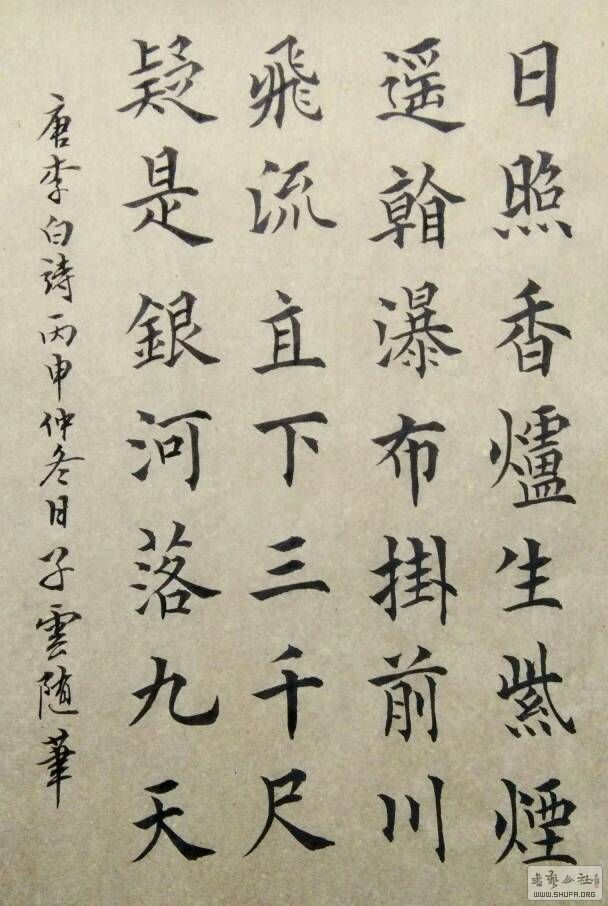 日照香爐生紫煙
遥看瀑布掛前川
飛流直下三千尺
疑是銀河落九天
唐李白詩丙申仲冬日子雲随筆
書藝公社
WWW.SHUFA.ORG